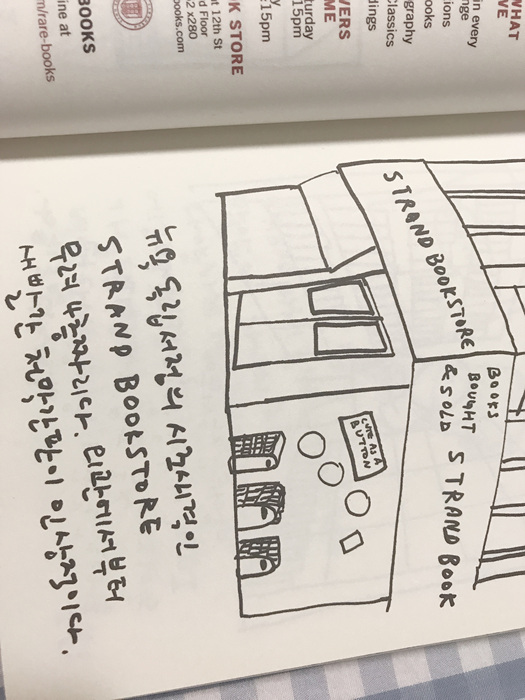 WHAT
VE
in every
nge
tions
ooks
graphy
Classics
dings
VERS
ME
turday
15pm
y
:15pm
K STORE
at 12th St
d Floor
2 x280
books.com
BOOKS
ine at
m/rare-books
STRAND BOOKSTORE
BOOKS
BOUGHT
& SOLD STRAND BOOK
CUTE AS A
BUTTON
뉴욕 독립서점의 시조새격인
STRAND BOOKSTORE
무려 4층짜리다. 외관에서부터
새빨간 천막간판이 인상적이다.